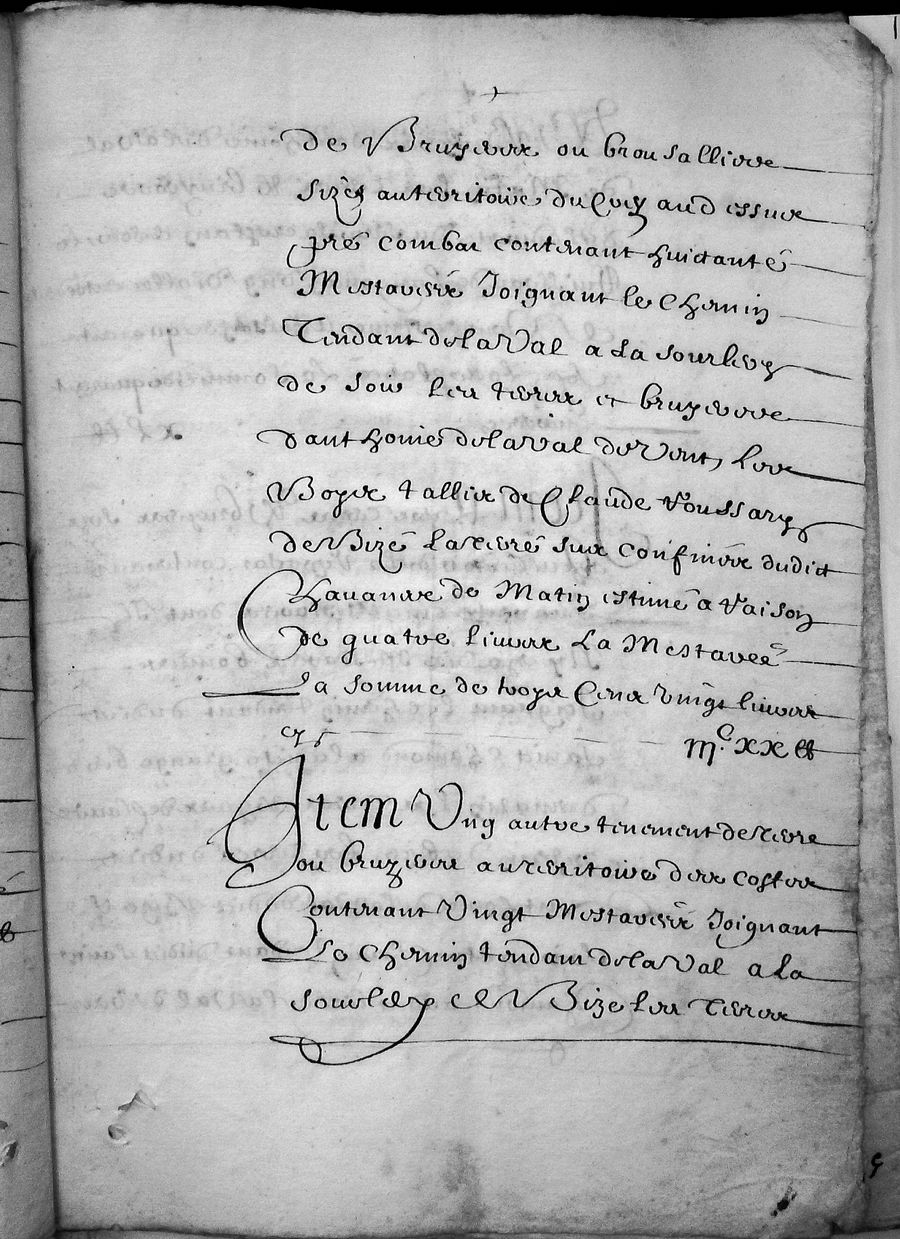 de Bruyeres ou brousallieres
sizes au teritoire du Coin au dessus
pré combat contenant huictante
Mestaueré Joignant le Chemin
Tendant de laval a La sour
de soir Les terres et bruyeres
danthonie de laval de Vent, Les
Boys talliez de Claude Roussary
de Bize La tierre sur confinee dudict
Chauanes de Matin estimé a raison
de quatre liures La Mestaueé
La somme de troys Cens vingt liures
mc. xx lt
Item Ung autre tenement de terre
ou bruyeres au teritoire des costes
Contenant Vingt Mestaueré Joignant
Le Chemin tendant de la Val a la
de Bize Les Terres